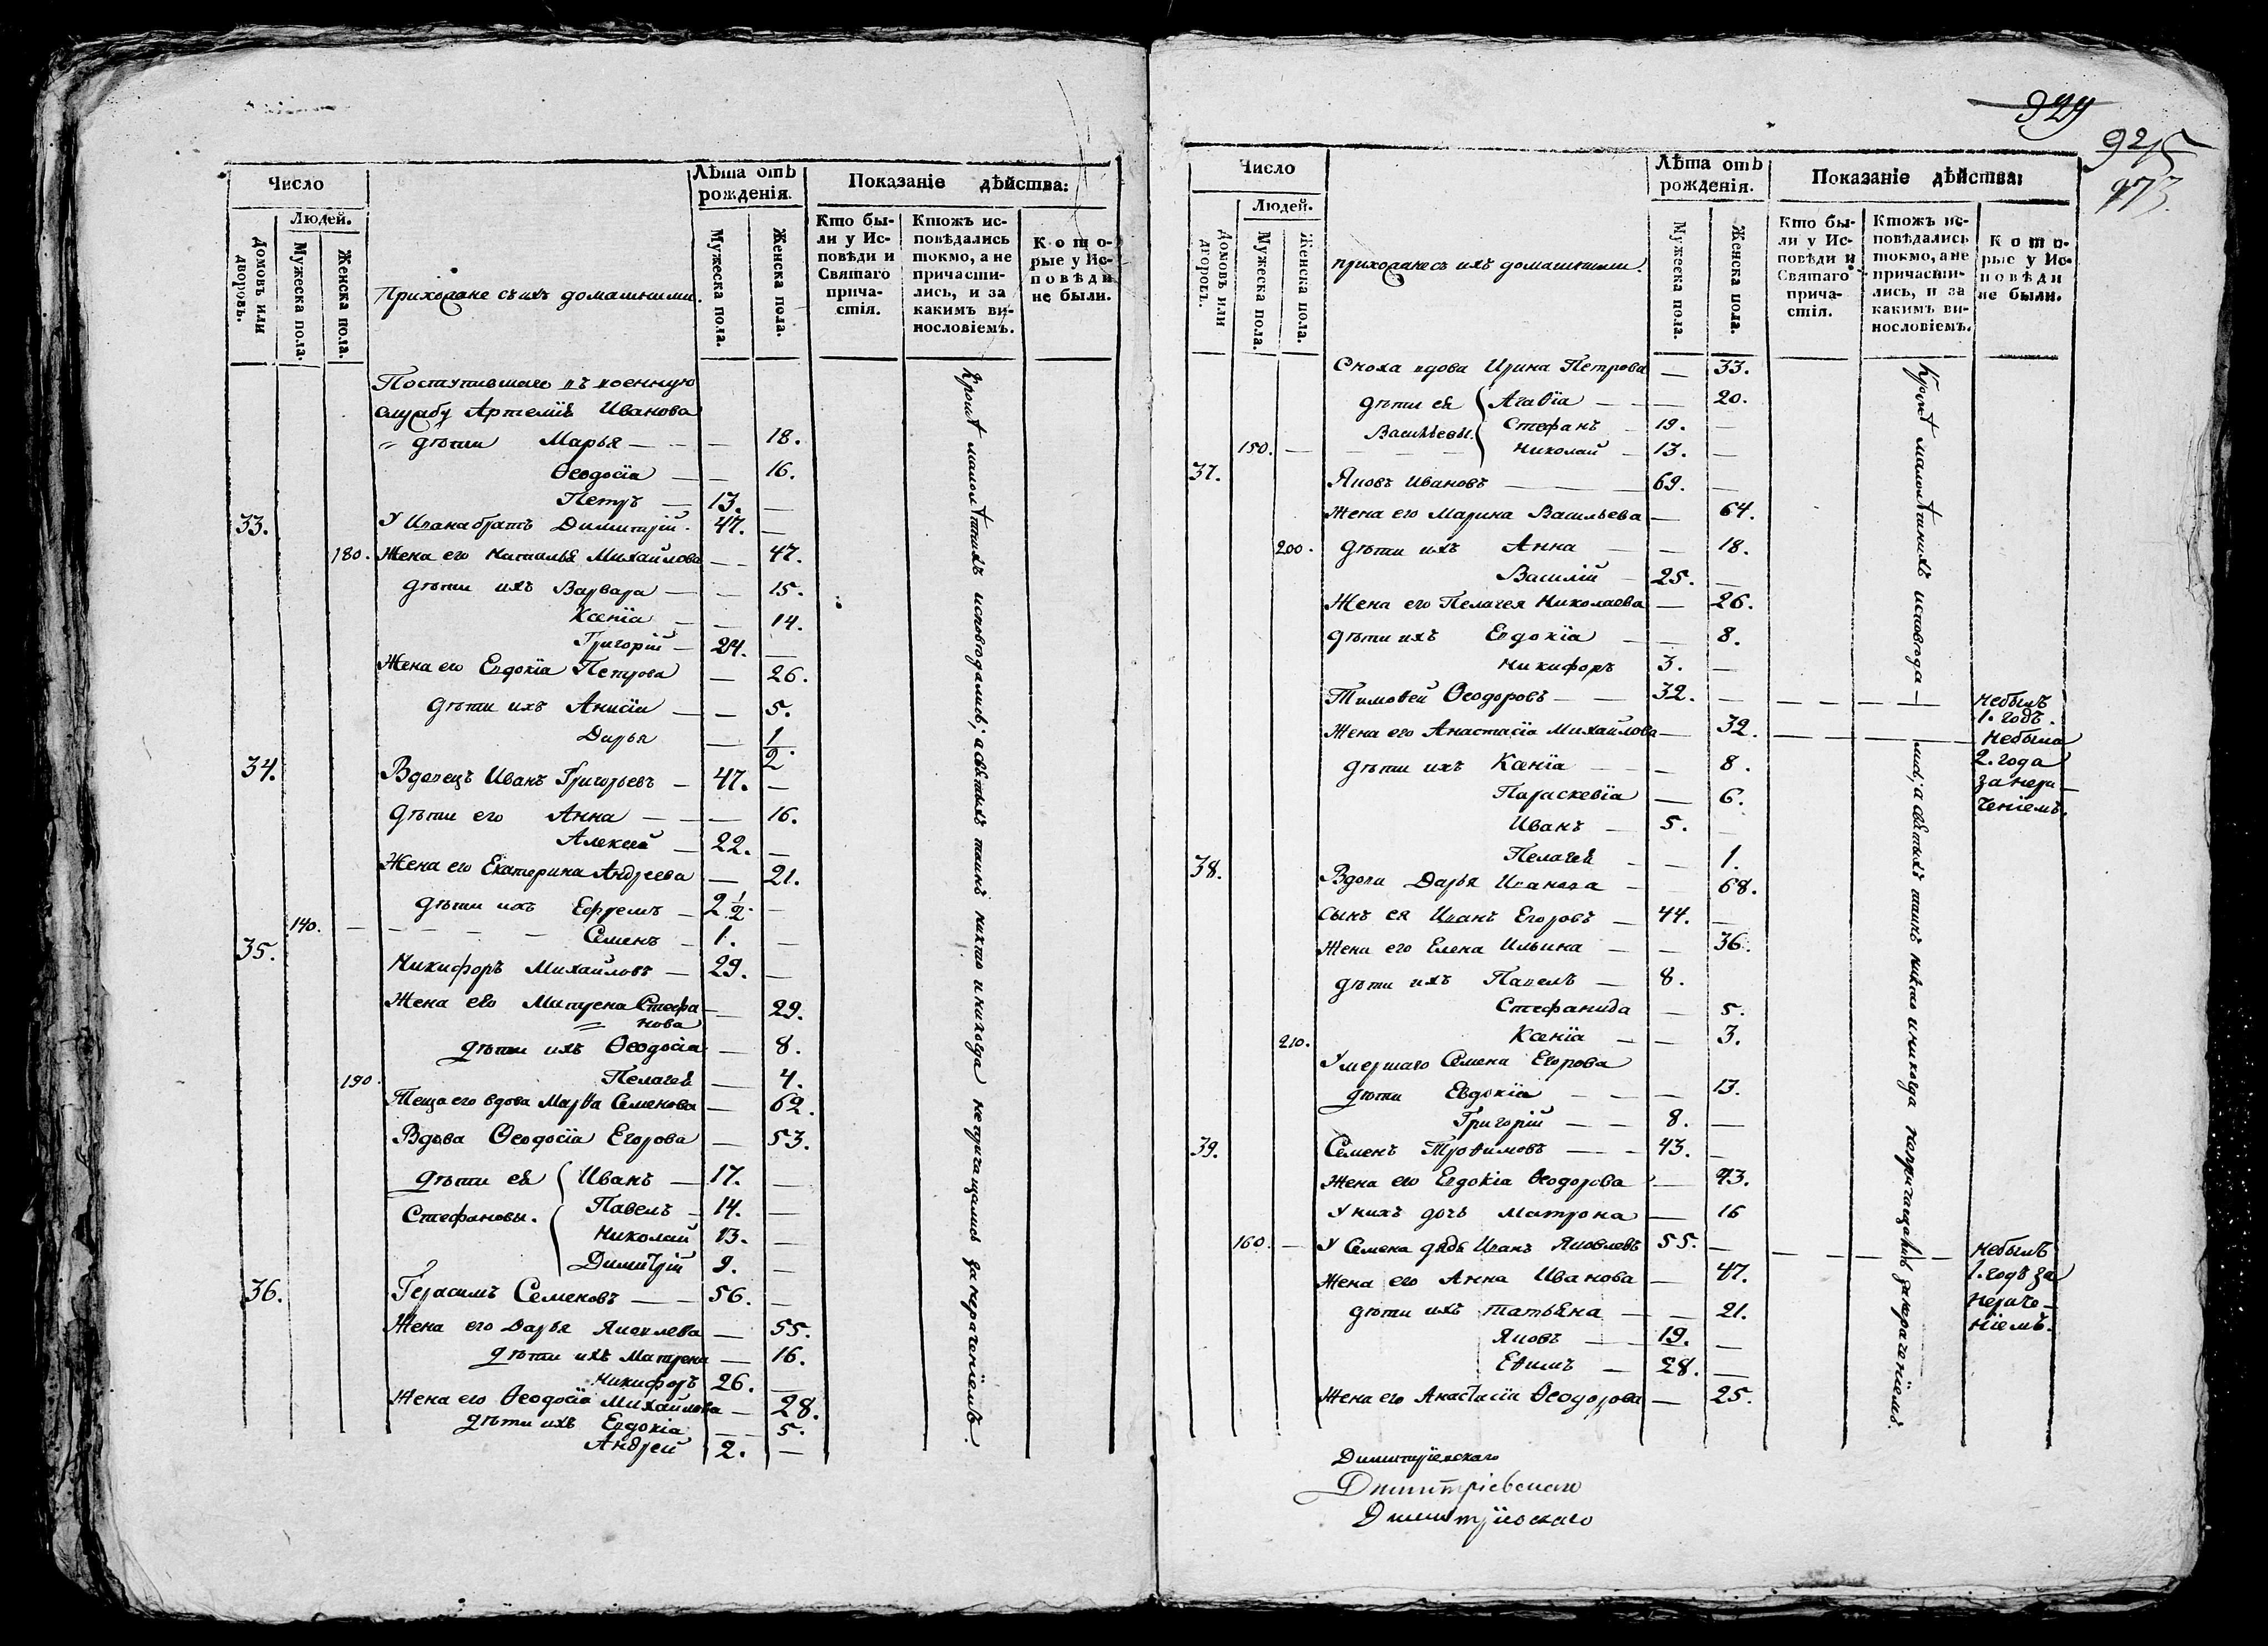 Число
Людей.
Домовъ или дворовъ.
Мужеска пола.
Женска пола.
Прихожане съ ихъ домашними.
Лѣта отъ рожденія.
Мужеска пола.
Женска пола.
Показаніе дѣйства:
Кто бы-
ли у Ис-
повѣди и
Святаго
прича-
стія.
Ктожъ ис-
повѣдались
токмо, а не
причасти-
лись, и за
какимъ ви-
нословіемъ.
Кото-
рые у Ис-
повѣди
не были.
Поступившаго въ военную
службу Артемія Иванова
дѣти Марья — — 18.
Ѳеодосія — — 16.
Петръ — 13. —
33. У Ивана братъ Димитрій. 47. —
180. Жена его Наталья Михайлова — — 47.
дѣти ихъ Варвара — — 15.
Ксенія — — 14.
Григорій — 24. —
Жена его Евдокія Петрова — 26.
дѣти ихъ Анисія — — 5.
Дарья — 1/2.
34. Вдовецъ Иванъ Григорьевъ — 47. —
дѣти его Анна — — 16.
Алексей — 22. —
Жена его Екатерина Андреева — 21.
дѣти ихъ Ефремъ — 2 1/2. —
140. — — — — — Семенъ — 1. —
35. Никифоръ Михайловъ — 29. —
Жена его Матрена Стефа — 29.
нова
дѣти ихъ Ѳеодосія — 8.
190. Пелагея — 4.
Теща его вдова Марѳа Семенова — 62.
Вдова Ѳеодосія Егорова — 53.
дѣти ея Иванъ — 17. —
Стефановы. Павелъ — 14. —
Николай 13. —
Димитрій 9. —
36. Герасимъ Семеновъ — — 56. —
Жена его Дарья Яковлева — 55.
дѣти ихъ Матрена — 16.
Никифоръ 26. —
Жена его Ѳеодосія Михайлова — 28.
дѣти ихъ Евдокія — 5.
Андрей 2. —
Кромѣ малолѣтнихъ исповѣдались; а святыхъ таинъ никто и никогда не причащались за нераченіемъ.
929
925
973.
Число
Людей.
Домовъ или дворовъ.
Мужеска пола.
Женска пола.
прихожане съ ихъ домашними.
Лѣта отъ рожденія.
Мужеска пола.
Женска пола.
Показаніе дѣйства:
Кто бы-
ли у Ис-
повѣди и
Святаго
прича-
стія.
Ктожъ ис-
повѣдались
токмо, а не
причасти-
лись, и за
какимъ ви-
нословіемъ.
Кото-
рые у Ис-
повѣди
не были.
Сноха вдова Ирина Петрова — 33.
дѣти ея Агаѳія — — 20.
Васильевы. Стефанъ — 19. —
150. — — — — Николай — 13. —
37. Яковъ Ивановъ — 69. —
Жена его Марина Васильева — 64.
200. дѣти ихъ Анна — — 18.
Василій — 25. —
Жена его Пелагея Николаева — 26.
дѣти ихъ Евдокія — — 8.
Никифоръ 3. —
Тимоѳей Ѳеодоровъ — — 32. — — — — — — небылъ
1. годъ.
Жена его Анастасія Михайлова — 32. — — — — — небыла
2. года
за нера —
ченіемъ.
дѣти ихъ Ксенія — — 8.
Параскевія — 6.
Иванъ — 5. —
Пелагея — — 1.
38. Вдова Дарья Иванова — — 68.
Сынъ ея Иванъ Егоровъ — 44. —
Жена его Елена Ильина — — 36.
дѣти ихъ Павелъ — 8.
Стефанида — 5.
210. Ксенія — — 3.
Умершаго Семена Егорова
дѣти Евдокія — — — 13.
Григорій — — 8. —
39. Семенъ Троѳимовъ — — 43. —
Жена его Евдокія Ѳеодорова — 43.
У нихъ дочь Матрона — 16
160. — У Семена дядя Иванъ Яковлевъ 55. — — — — — — небылъ
1. годъ за
нераче —
ніемъ.
Жена его Анна Иванова — 47.
дѣти ихъ Татьяна — — 21.
Яковъ — 19. —
Еѳимъ — 28. —
Жена его Анастасія Ѳеодорова — 25.
Кромѣ малолѣтнихъ исповѣда — лись; а святыхъ таинъ никто и никогда непричащались за нераченіемъ.
Димитріевскаго
Димитріевскаго
Димитріевскаго